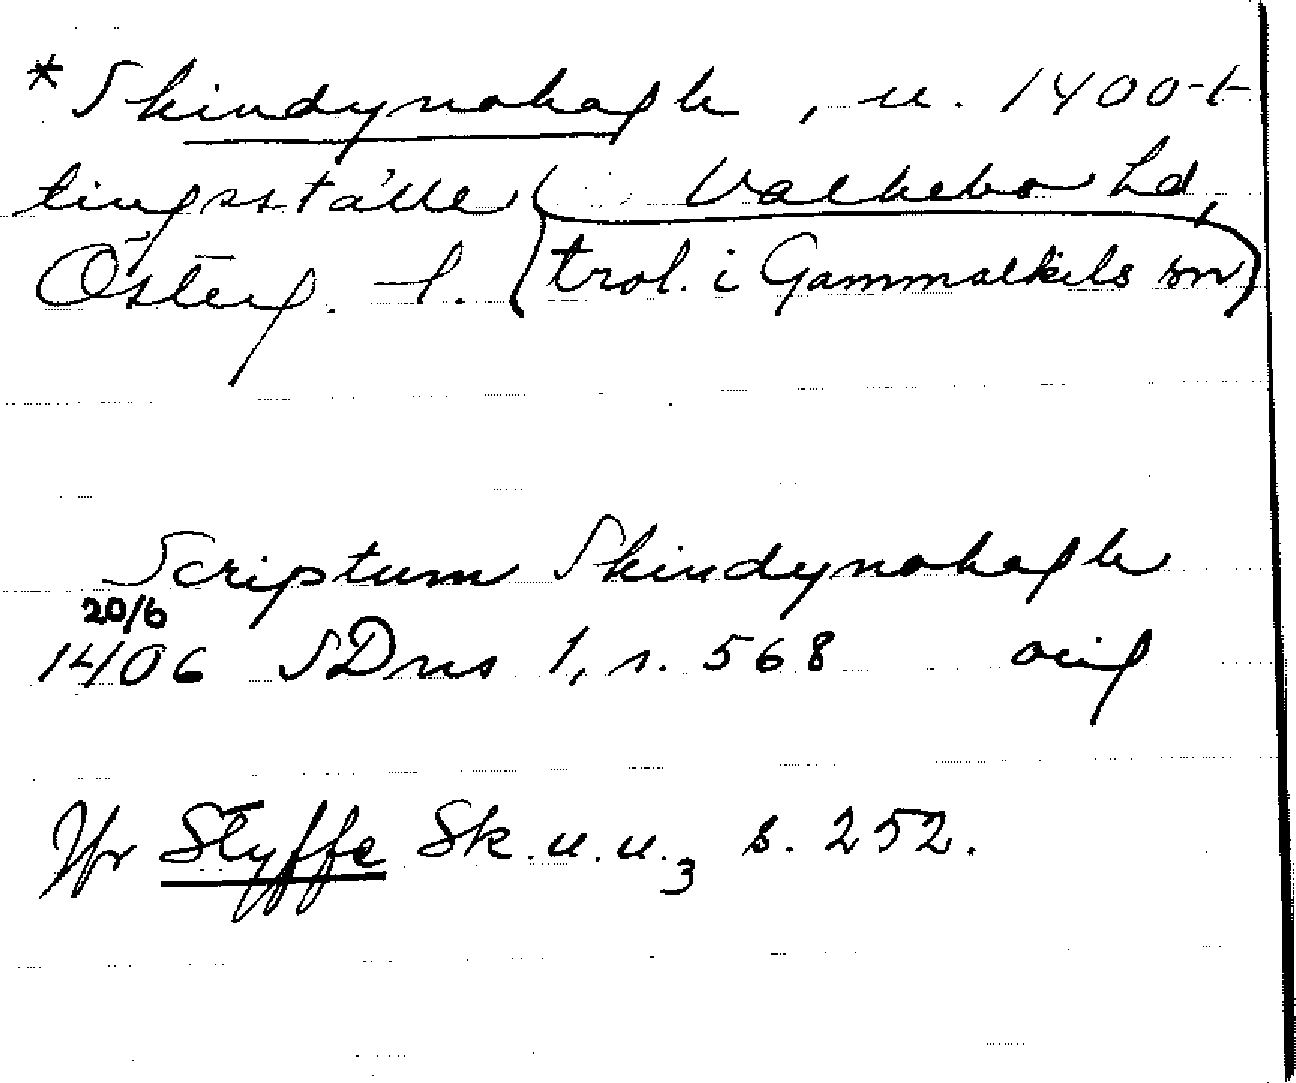 *Skindynohagh, u. 1400-t
tingsställe i Valkebo hd,
Österg. l. (trol. i Gammalkils sn)
Scriptum Skindynohagh
20/6
1406 SDns 1, s. 568 orig
Jfr Styffe Sk.u.u.3 s. 252.